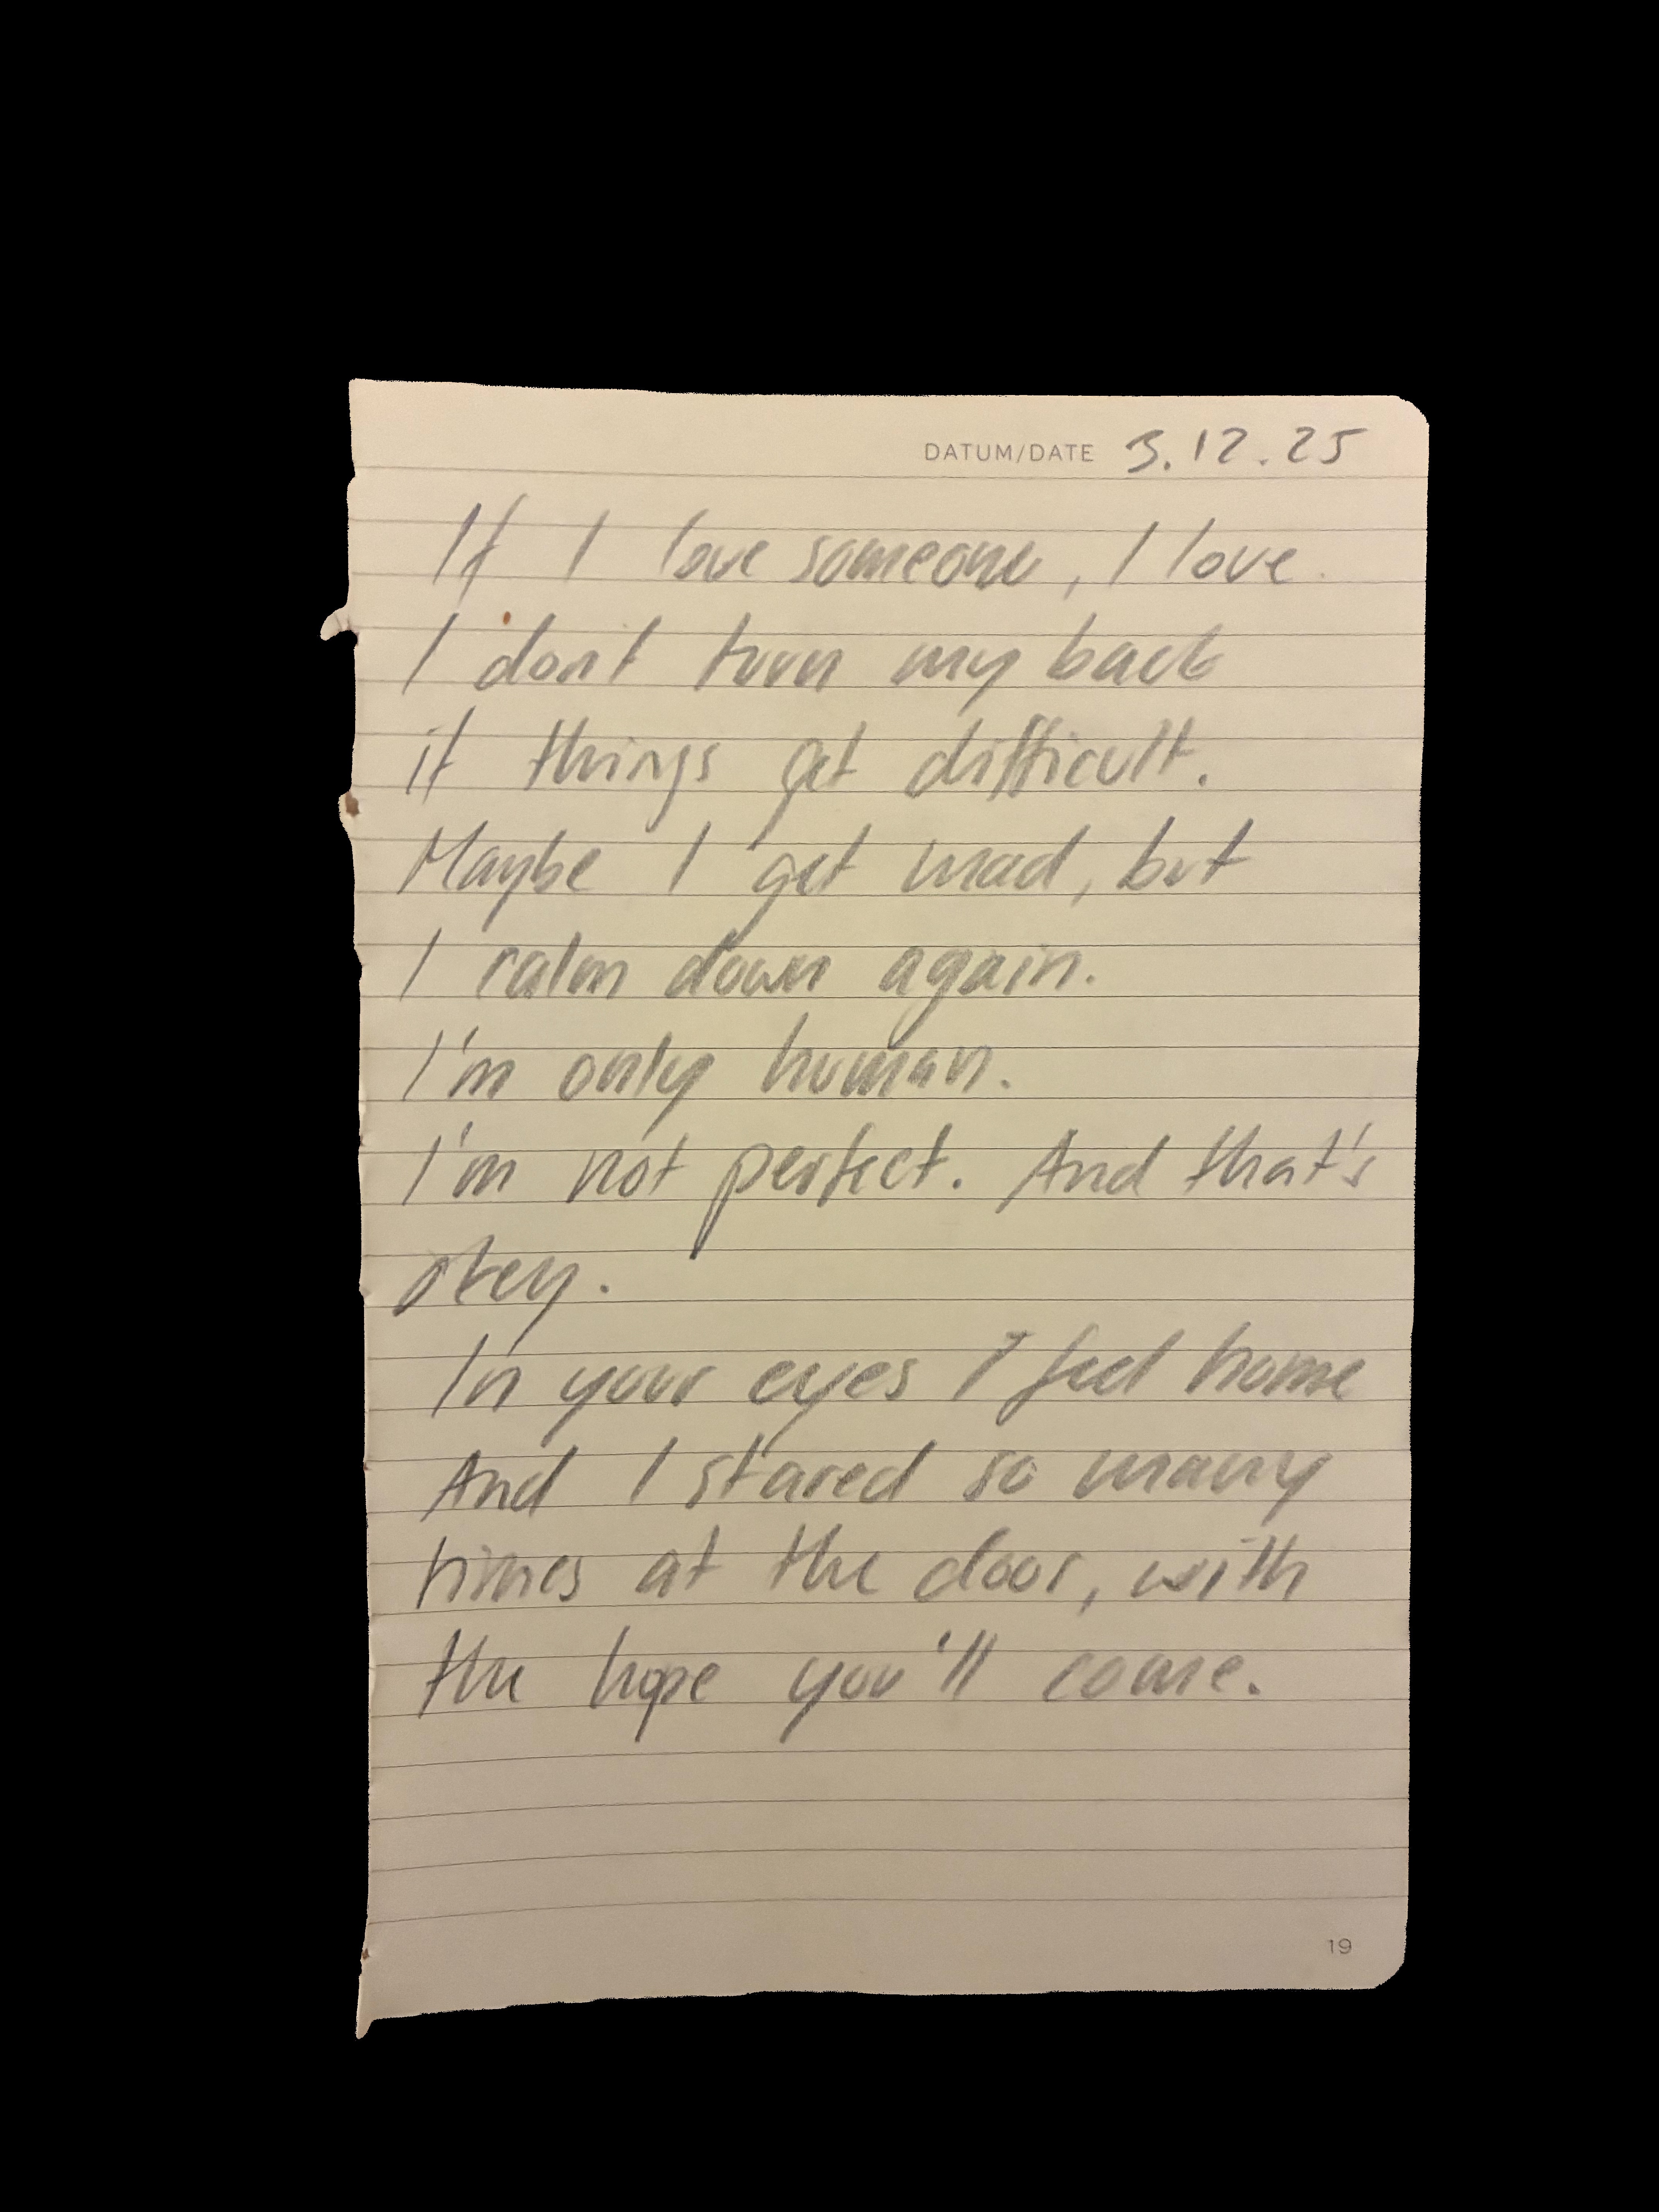 DATUM/DATE 3.12.25
If I love someone, I love.
I don't turn my back
if things get difficult.
Maybe I get mad, but
I calm down again.
I'm only human.
I'm not perfect. And that's
okey.
In your eyes I feel home
And I stared so many
times at the door, with
the hope you'll come.
19